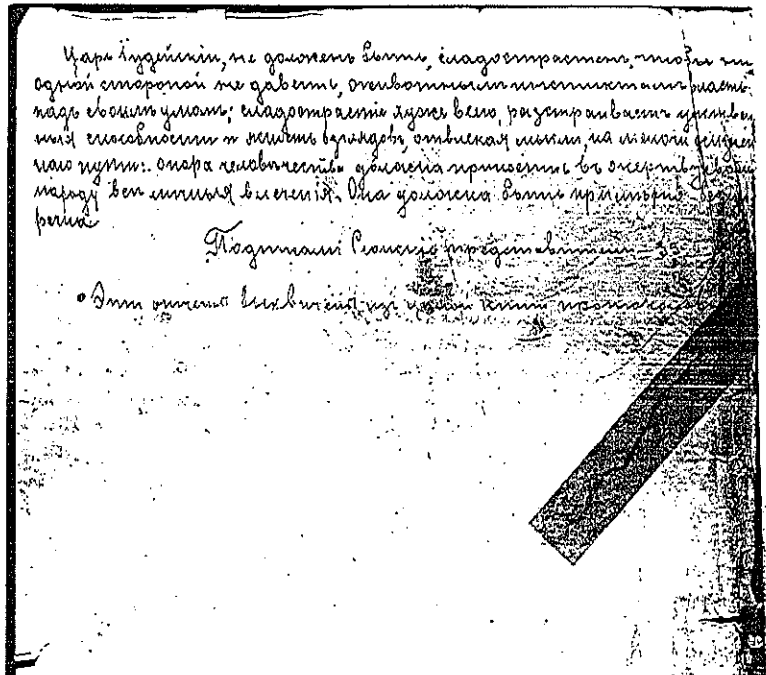 Царь Іудейскій, не долженъ быть, сладострастенъ, чтобы ни
одной стороной не давать, животнымъ инстинктамъ власть
надъ своимъ умомъ; сладострастіе хуже всего, разстраиваетъ умствен
ныя способности и ясность взглядовъ, отвлекая мысли, на
опора человѣчества должна приносить въ жертву своему
народу всѣ личныя влеченія. Она должна быть примѣрно
Подписали Сіонскіе представители
Эти отчеты изъ цѣлой книги